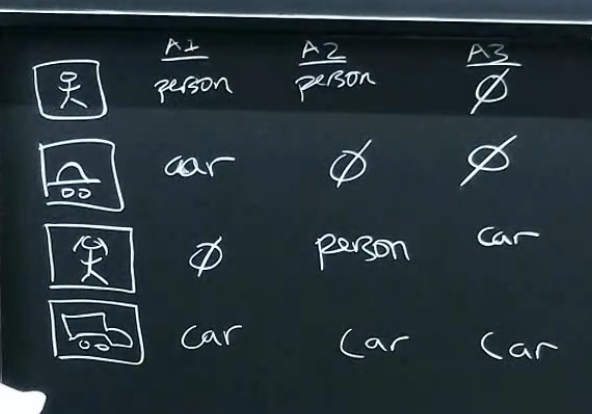 A1 A2 A3
person person Ø
car Ø Ø
Ø person car
car car car